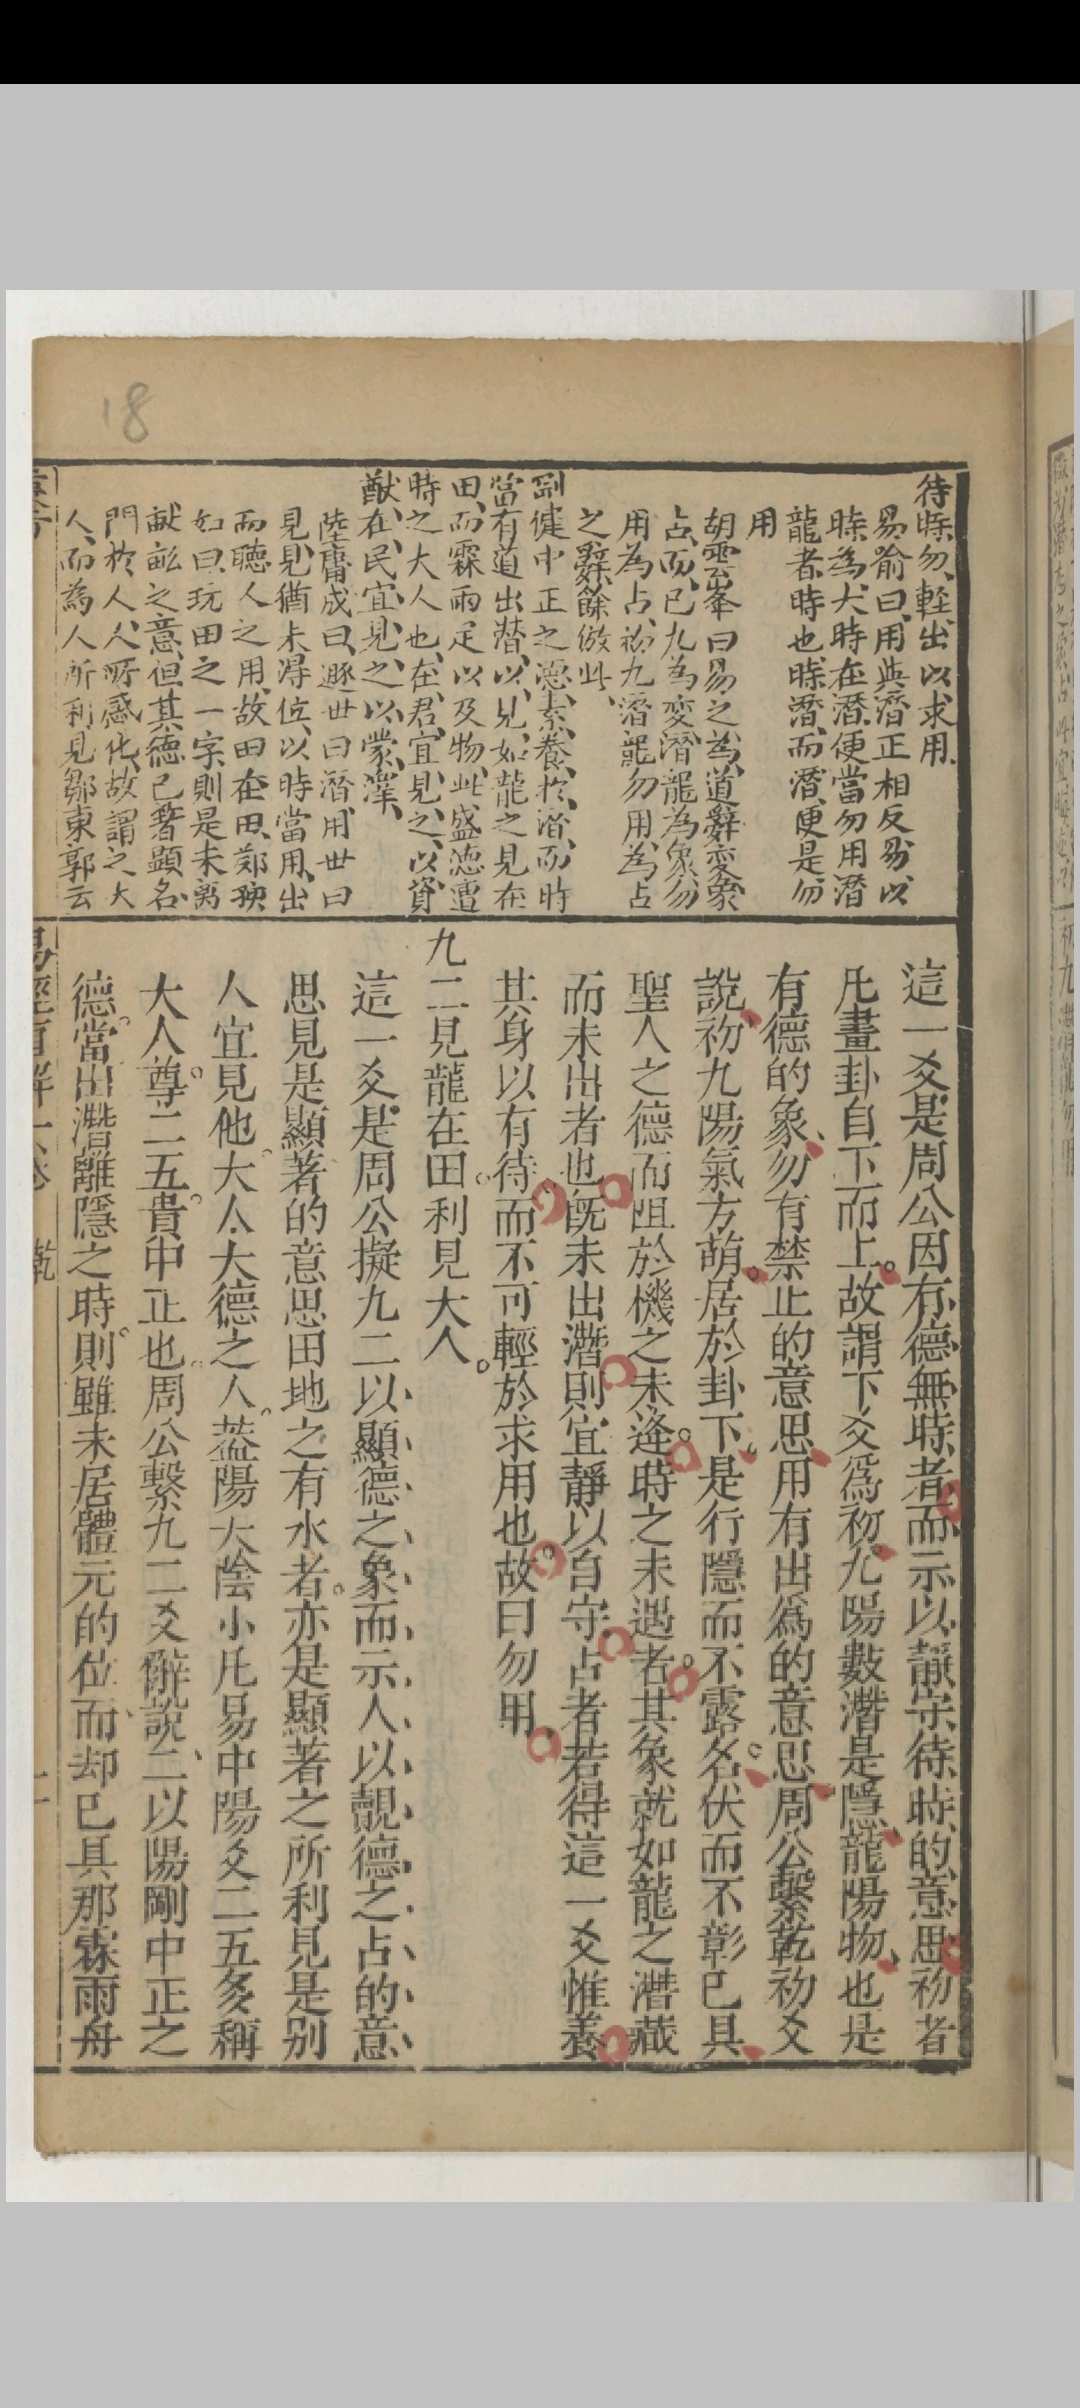 18
待時勿輕出以求用
易喻曰用與潛正相反易以
時為大時在潛便當勿用潛
龍者時也時潛而潛便是勿
用
胡雲峯曰易之為道辭變象
占而已九為變潛龍為象勿
用為占初九潛龍勿用為占
之辭餘倣此
剛健中正之德素養於潛而時
當有道出潛以見如龍之見在
田而霖雨足以及物此盛德遭
時之大人也在君宜見之以資
猷在民宜見之以蒙澤
陸庸成曰遯世曰潛用世曰
見見猶未得位以時當用出
而聽人之用故田在田鄭
如曰玩田之一字則是未離
畎畝之意但其德已著顯名
門於人人所感化故謂之大
人而為人所利見鄒東郭云
這一爻是周公因有德無時者而示以靜守待時的意思初者
凡畫卦自下而上故謂下爻爲初九陽數潛是隱龍陽物也是
有德的象勿有禁止的意思用有出爲的意思周公繫乾初爻
說初九陽氣方萌居於卦下是行隱而不露名伏而不彰已具
聖人之德而阻於機之未逢時之未遇者其象就如龍之潛藏
而未出者也既未出潛則宜靜以自守占者若得這一爻惟養
其身以有待而不可輕於求用也故曰勿用
九二見龍在田利見大人
這一爻是周公擬九二以顯德之象而示人以覿德之占的意
思見是顯著的意思田地之有水者亦是顯著之所利見是別
人宜見他大人大德之人葢陽大陰小凡易中陽爻二五多稱
大人尊二五貴中正也周公繫九二爻辭說二以陽剛中正之
德當出潛離隱之時則雖未居體元的位而却已具那霖雨舟
易經百解一卷
乾